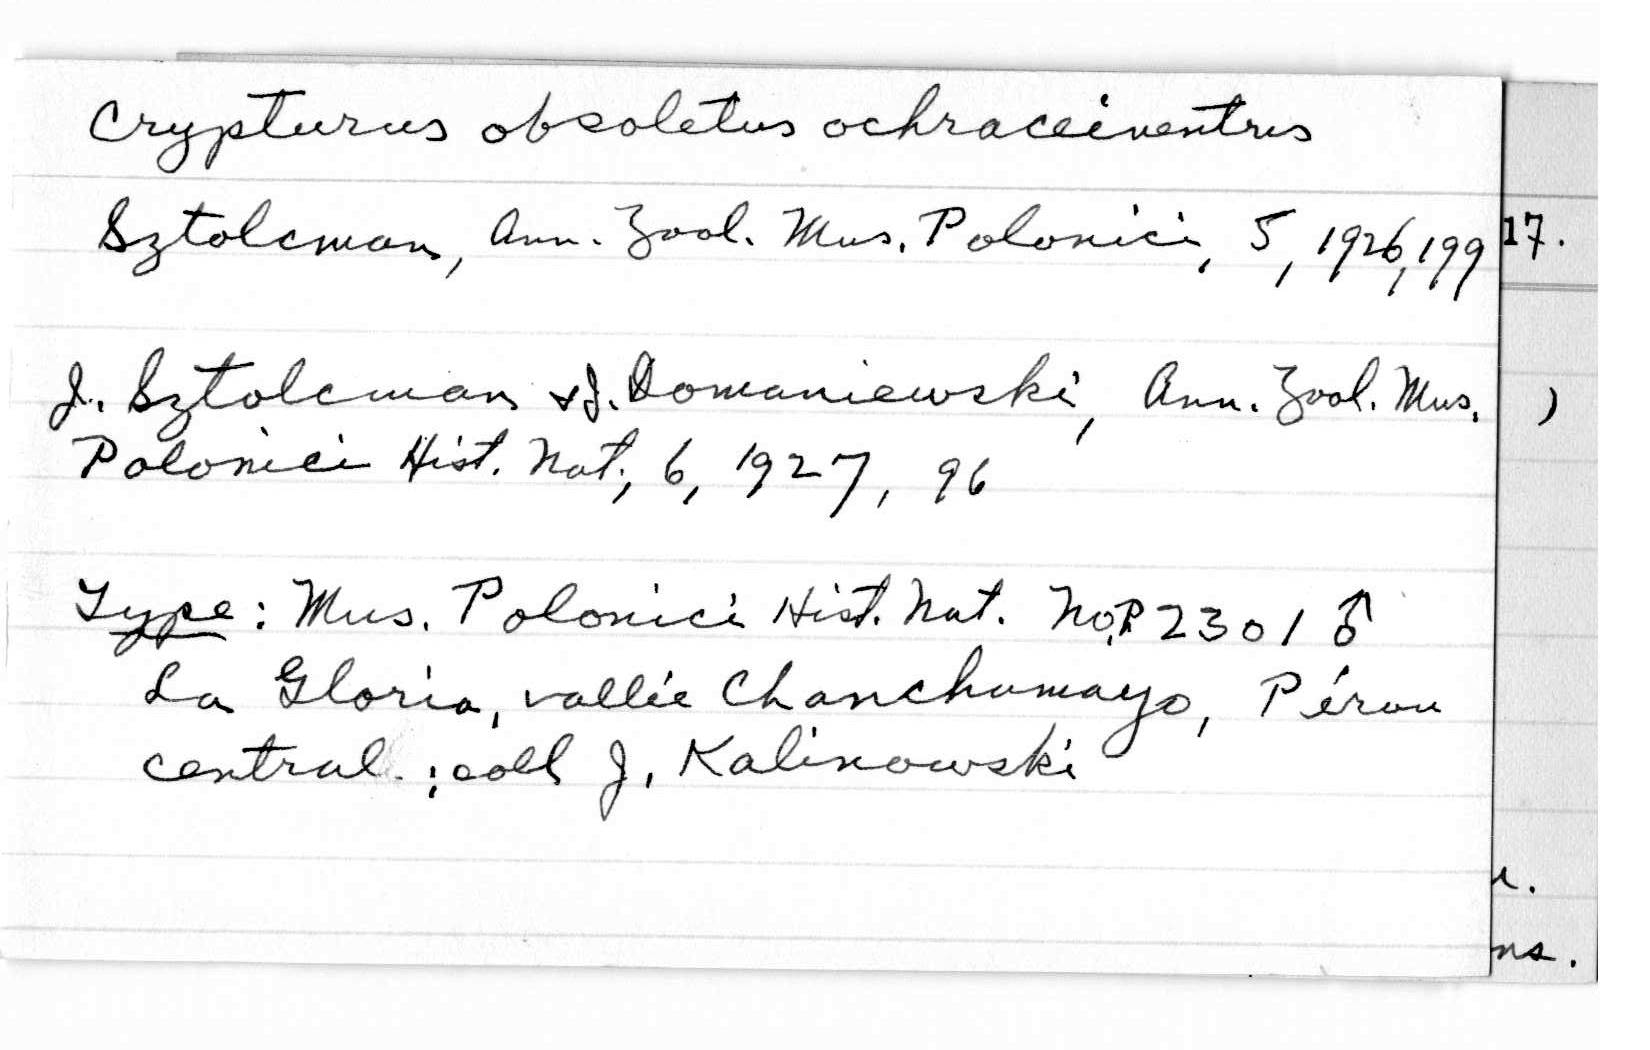 Crypturus obsoletus ochraceiventris
Sztolcman, Ann. Zool. Mus. Polonici, 5, 1926, 199
17.
J. Sztolcman & J. Domaniewski, Ann. Zool. Mus.
)
Polonici Hist. Nat., 6, 1927, 96
Type: Mus. Polonici Hist. Nat. No. P 2301 ♂
La Gloria, vallée Chanchamayo, Pérou
central.; coll J. Kalinowski
ns.